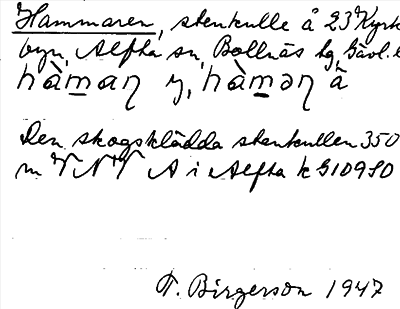 Hammaren, stenkulle å 23 Kyrk
byn, Alfta sn, Bollnäs tg, Gävl. l
hàmaɳ y, hàmǝɳ â
Den skogsklädda stenkullen 350
m VNV A i Alfta k G109S0
T. Birgerson 1947